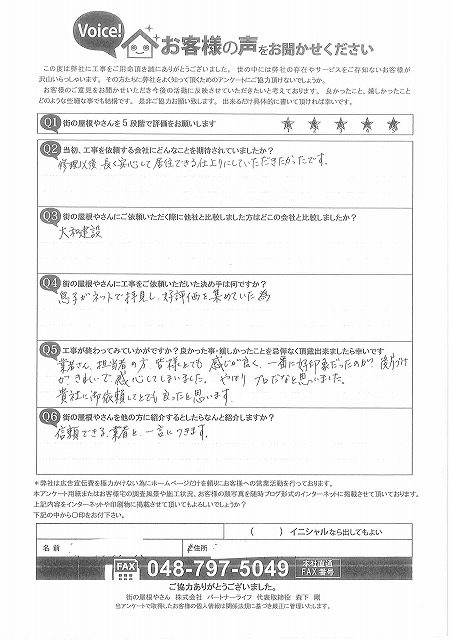 Voice!
お客様の声をお聞かせください
この度は弊社に工事をご用命頂き誠にありがとうございました。世の中には弊社の存在やサービスをご存知ないお客様が
沢山いらっしゃいます。その方たちに弊社をよく知って頂くためのアンケートにご協力頂けないでしょうか？
お客様のご意見をお聞かせいただき今後の活動に反映させていただきたいと考えております。良かったこと、嬉しかったこと
どのような些細な事でも結構です。是非ご協力お願い致します。出来るだけ具体的に書いて頂ければ幸いです。
Q1 街の屋根やさんを5段階で評価をお願いします ★ ★ ★ ★ ★
Q2 当初、工事を依頼する会社にどんなことを期待されていましたか？
修理以後長く安心して居住できる仕上りにしていただきたかったです。
Q3 街の屋根やさんにご依頼いただく際に他社と比較しました方はどこの会社と比較しましたか？
大和建設
Q4 街の屋根やさんに工事をご依頼いただいた決め手は何ですか？
息子がネットで拝見し、好評価を集めていた為
Q5 工事が終わってみていかがですか？良かった事・嬉しかったことを忌憚なく頂戴出来ましたら幸いです
業者さん、担当者の方、皆様とても感じが良く、一番に好印象だったのが、後片付け
がきれいで、感心してしまいました。やはりプロだなと思いました。
貴社に御依頼してとても良かったと思います。
Q6 街の屋根やさんを他の方に紹介するとしたらなんと紹介しますか？
信頼できる業者と、一言につきます。
＊弊社は広告宣伝費を極力かけない為にホームページだけを頼りにお客様への営業活動を行っております。
本アンケート用紙またはお客様宅の調査風景や施工状況、お客様の顔写真を随時ブログ形式のインターネットに掲載させて頂いております。
上記内容をインターネットや印刷物に掲載させて頂いてもよろしいでしょうか？
下記の中から〇印をお付下さい。
（　　）イニシャルなら出してもよい
名前
ご住所
FAX 048-797-5049 本社直通 FAX番号
ご協力ありがとうございました。
街の屋根やさん 株式会社 パートナーライフ 代表取締役 森下 剛
当アンケートで取得したお客様の個人情報は関係法規に基づき厳正に管理いたします。